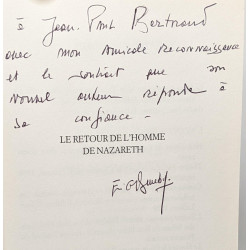 à Jean-Paul Bertrand
avec mon amicale reconnaissance
et le souhait que son
nouvel auteur réponde à
sa confiance -
LE RETOUR DE L'HOMME
DE NAZARETH